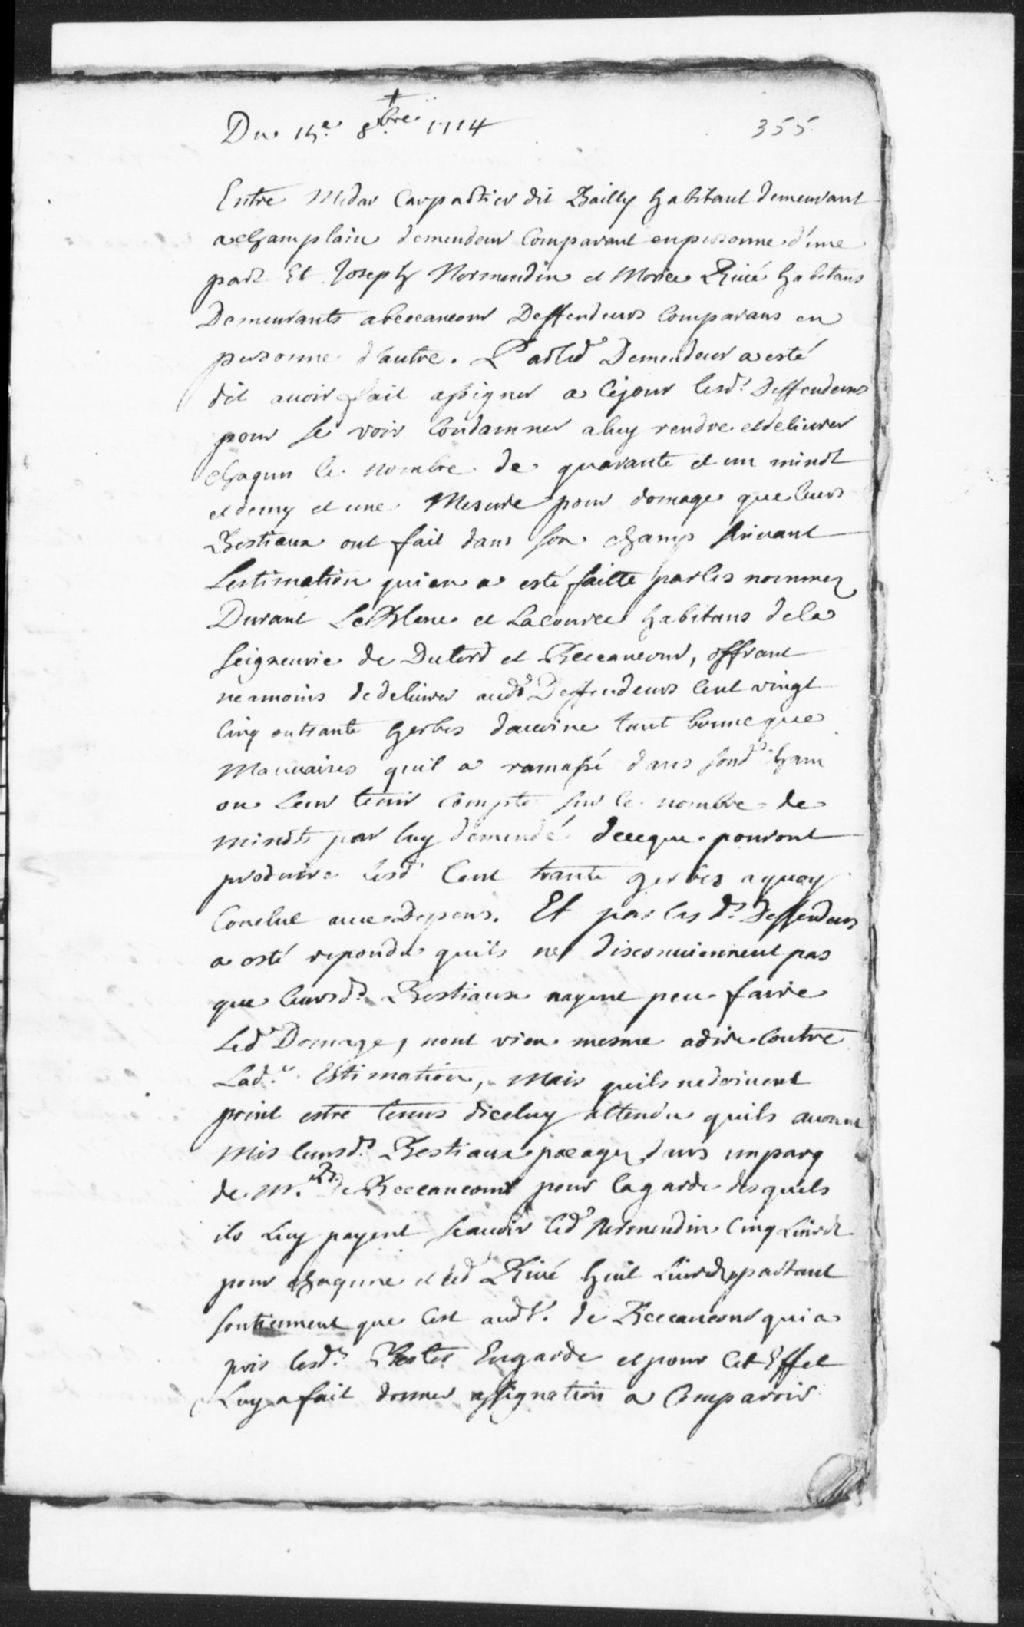 Du 15e 8bre 1714 355
Entre Medar Carpantier dit Bailly habitant demeurant
a champlain demendeur Comparant en personne d'une
part Et Joseph Normendin et Morice Rivé habitans
Demeurants a beccancour Deffendeurs Comparans en
personne d'autre. Par led Demendeur a esté
dit avoir fait assigner a ce jour lesd. deffendeurs
pour se voir Condamner a luy rendre et delivrer
chaqun le nombre de quarante et un minot
et demy et une Mesure pour domage que leurs
Bestiaux ont fait dans son champ suivant
Lestimation qui en a esté faitte par les nommez
Durant Le Blanc et Lacource habitans de la
seigneurie de Dutord et Beccancour, offrant
neamoins de delivrer aud. Deffendeurs Cent vingt
Cinq ou trante gerbes davoine tant bonne que
Mauvaises quil a ramassé dans sond. cham
ou leur tenir compte sur le nombre de
minots par luy demendé de ce que pouront
produire lesd. Cent trante gerbes a quoy
Conclut avec Depens. Et par les d. deffendeurs
a esté repondu quils ne disconviennent pas
que leursd. Bestiaux nayent peu faire
Led. Domage, nont rien mesme a dire Contre
Lad. Estimation, Mais quils ne doivent
point estre tenus diceluy attendu quils avoient
Mis leursd. Bestiaux pacager dans un parq
de Mr. de Beccancour pour la garde desquels
ils Luy payent scavoir led. Normendin Cinq Livres
pour chaqune et led. Rivé huit Livres partant
soutiennent que Cest aud Sr. de Beccancour qui a
pris lesd. Bestes En garde et pour Cet Effet
Luy a fait donner assignation a Comparoir